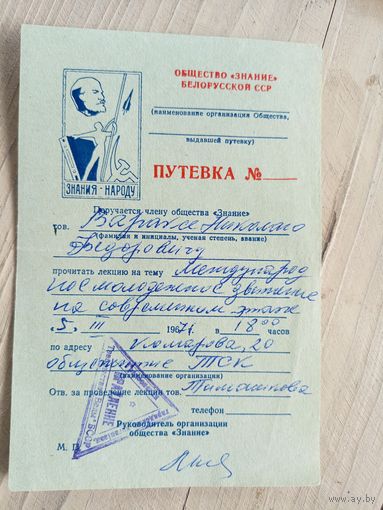 ОБЩЕСТВО «ЗНАНИЕ»
БЕЛОРУССКОЙ ССР
(наименование организации Общества,
выдавшей путевку)
ЗНАНИЯ - НАРОДУ
ПУТЕВКА №
Поручается члену общества «Знание»
тов. Николаю
(фамилия и инициалы, ученая степень, звание)
Фёдоровичу
прочитать лекцию на тему Международ
ное молодежное движение
на современном этапе
"5" III 1967 г. в 18 00 часов
по адресу Комарова, 20
общежитие ТСК
(наименование организации)
Отв. за проведение лекции тов. Тимашкова
телефон
Руководитель организации
общества «Знание»
М. П.
ay.by